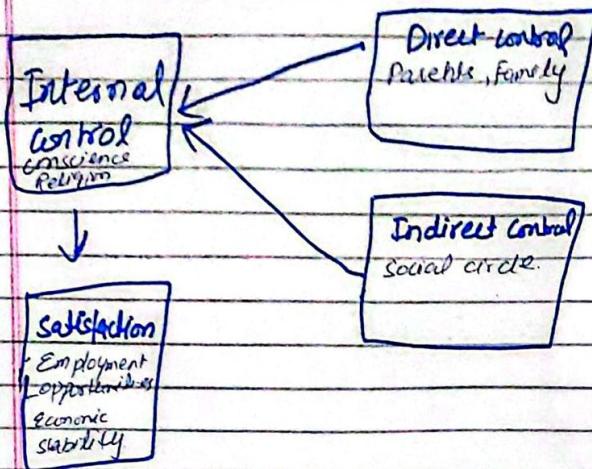 Internal
control
conscience
Religion
Direct control
Parents, family
Indirect control
social circle.
satisfaction
- Employment
opportunities
Economic
stability